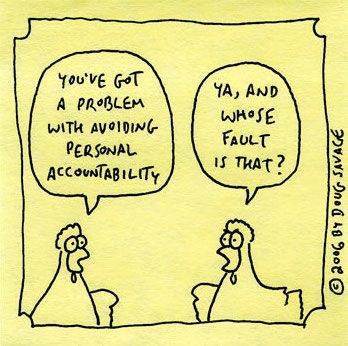 YOU'VE GOT
A PROBLEM
WITH AVOIDING
PERSONAL
ACCOUNTABILITY
YA, AND
WHOSE
FAULT
IS THAT?
© 2006 BY DOUG SAVAGE